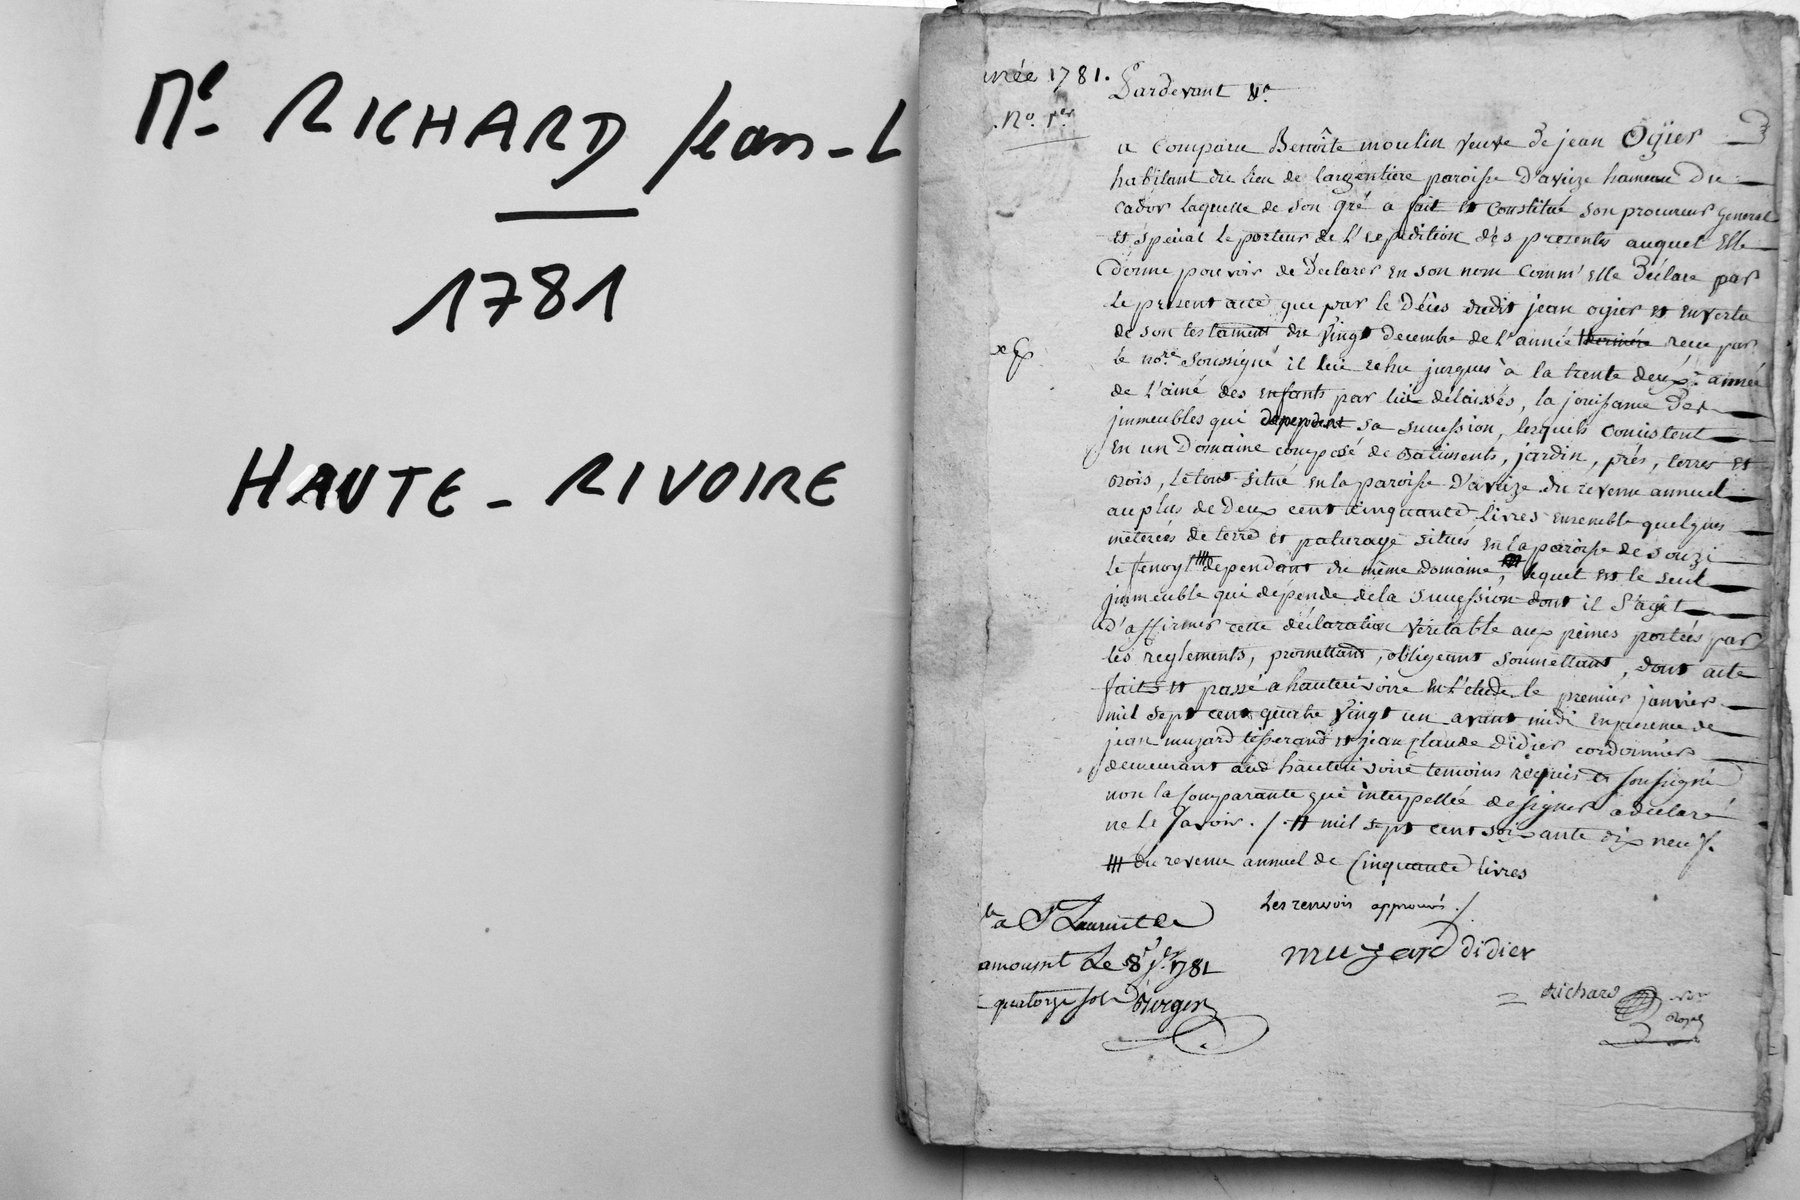 Me. RICHARD Jean-L
1781
HAUTE-RIVOIRE
année 1781.
No. 1er
Pardevant Ne
a Comparu Benoîte moulin veuve de jean Ogier
habitant du lieu de largentière paroisse D'aveize hameau Du
cador laquelle de son gré a fait et Constitué son procureur general
et spécial le porteur de l'expedition des presentes auquel Elle
donne pouvoir de Déclarer en son nom Comm' elle Déclare par
le present acte que par le Décès dudit jean ogier et en vertu
de son testament du vingt decembre de l'année derniére recu par
le nore. soussigné il lui échu jusques à la trente deuxe. année
de l'ainé des enfants par lui délaissés, la jouissance Des
jmmeubles qui dependent sa succession, lesquels consistent
En un Domaine composé de Batiments, jardin, prés, terres et
Bois, le tout situé en la paroisse D'aveize du revenu annuel
au plus de Deux cent cinquante livres ensemble quelques
méterées de terre et paturage situés en la paroisse de souzi
le fenoyl dependant du même domaine, lequel est le seul
jmmeuble qui dépende de la succession dont il s'agit
D'affirmer cette déclaration véritable aux peines portées par
les reglements, promettant, obligeant soumettant, dont acte
fait et passé a hauterivoire en l'étude le premier janvier
mil sept cent quatre vingt un avant midi en presence de
jean muzard tisserand et jean Claude Didier cordonnier
demeurant aud hauterivoire temoins requis et soussigné
non la Comparante qui interpellée de signer a déclaré
ne le savoir. / # mil sept cent soixante dix neuf.
# du revenu annuel de Cinquante livres
Les renvois approuvés. /
muzard didier
Richard nore Royal
a St Laurent de
chamousset Le 8 jer 1781
quatorze sols